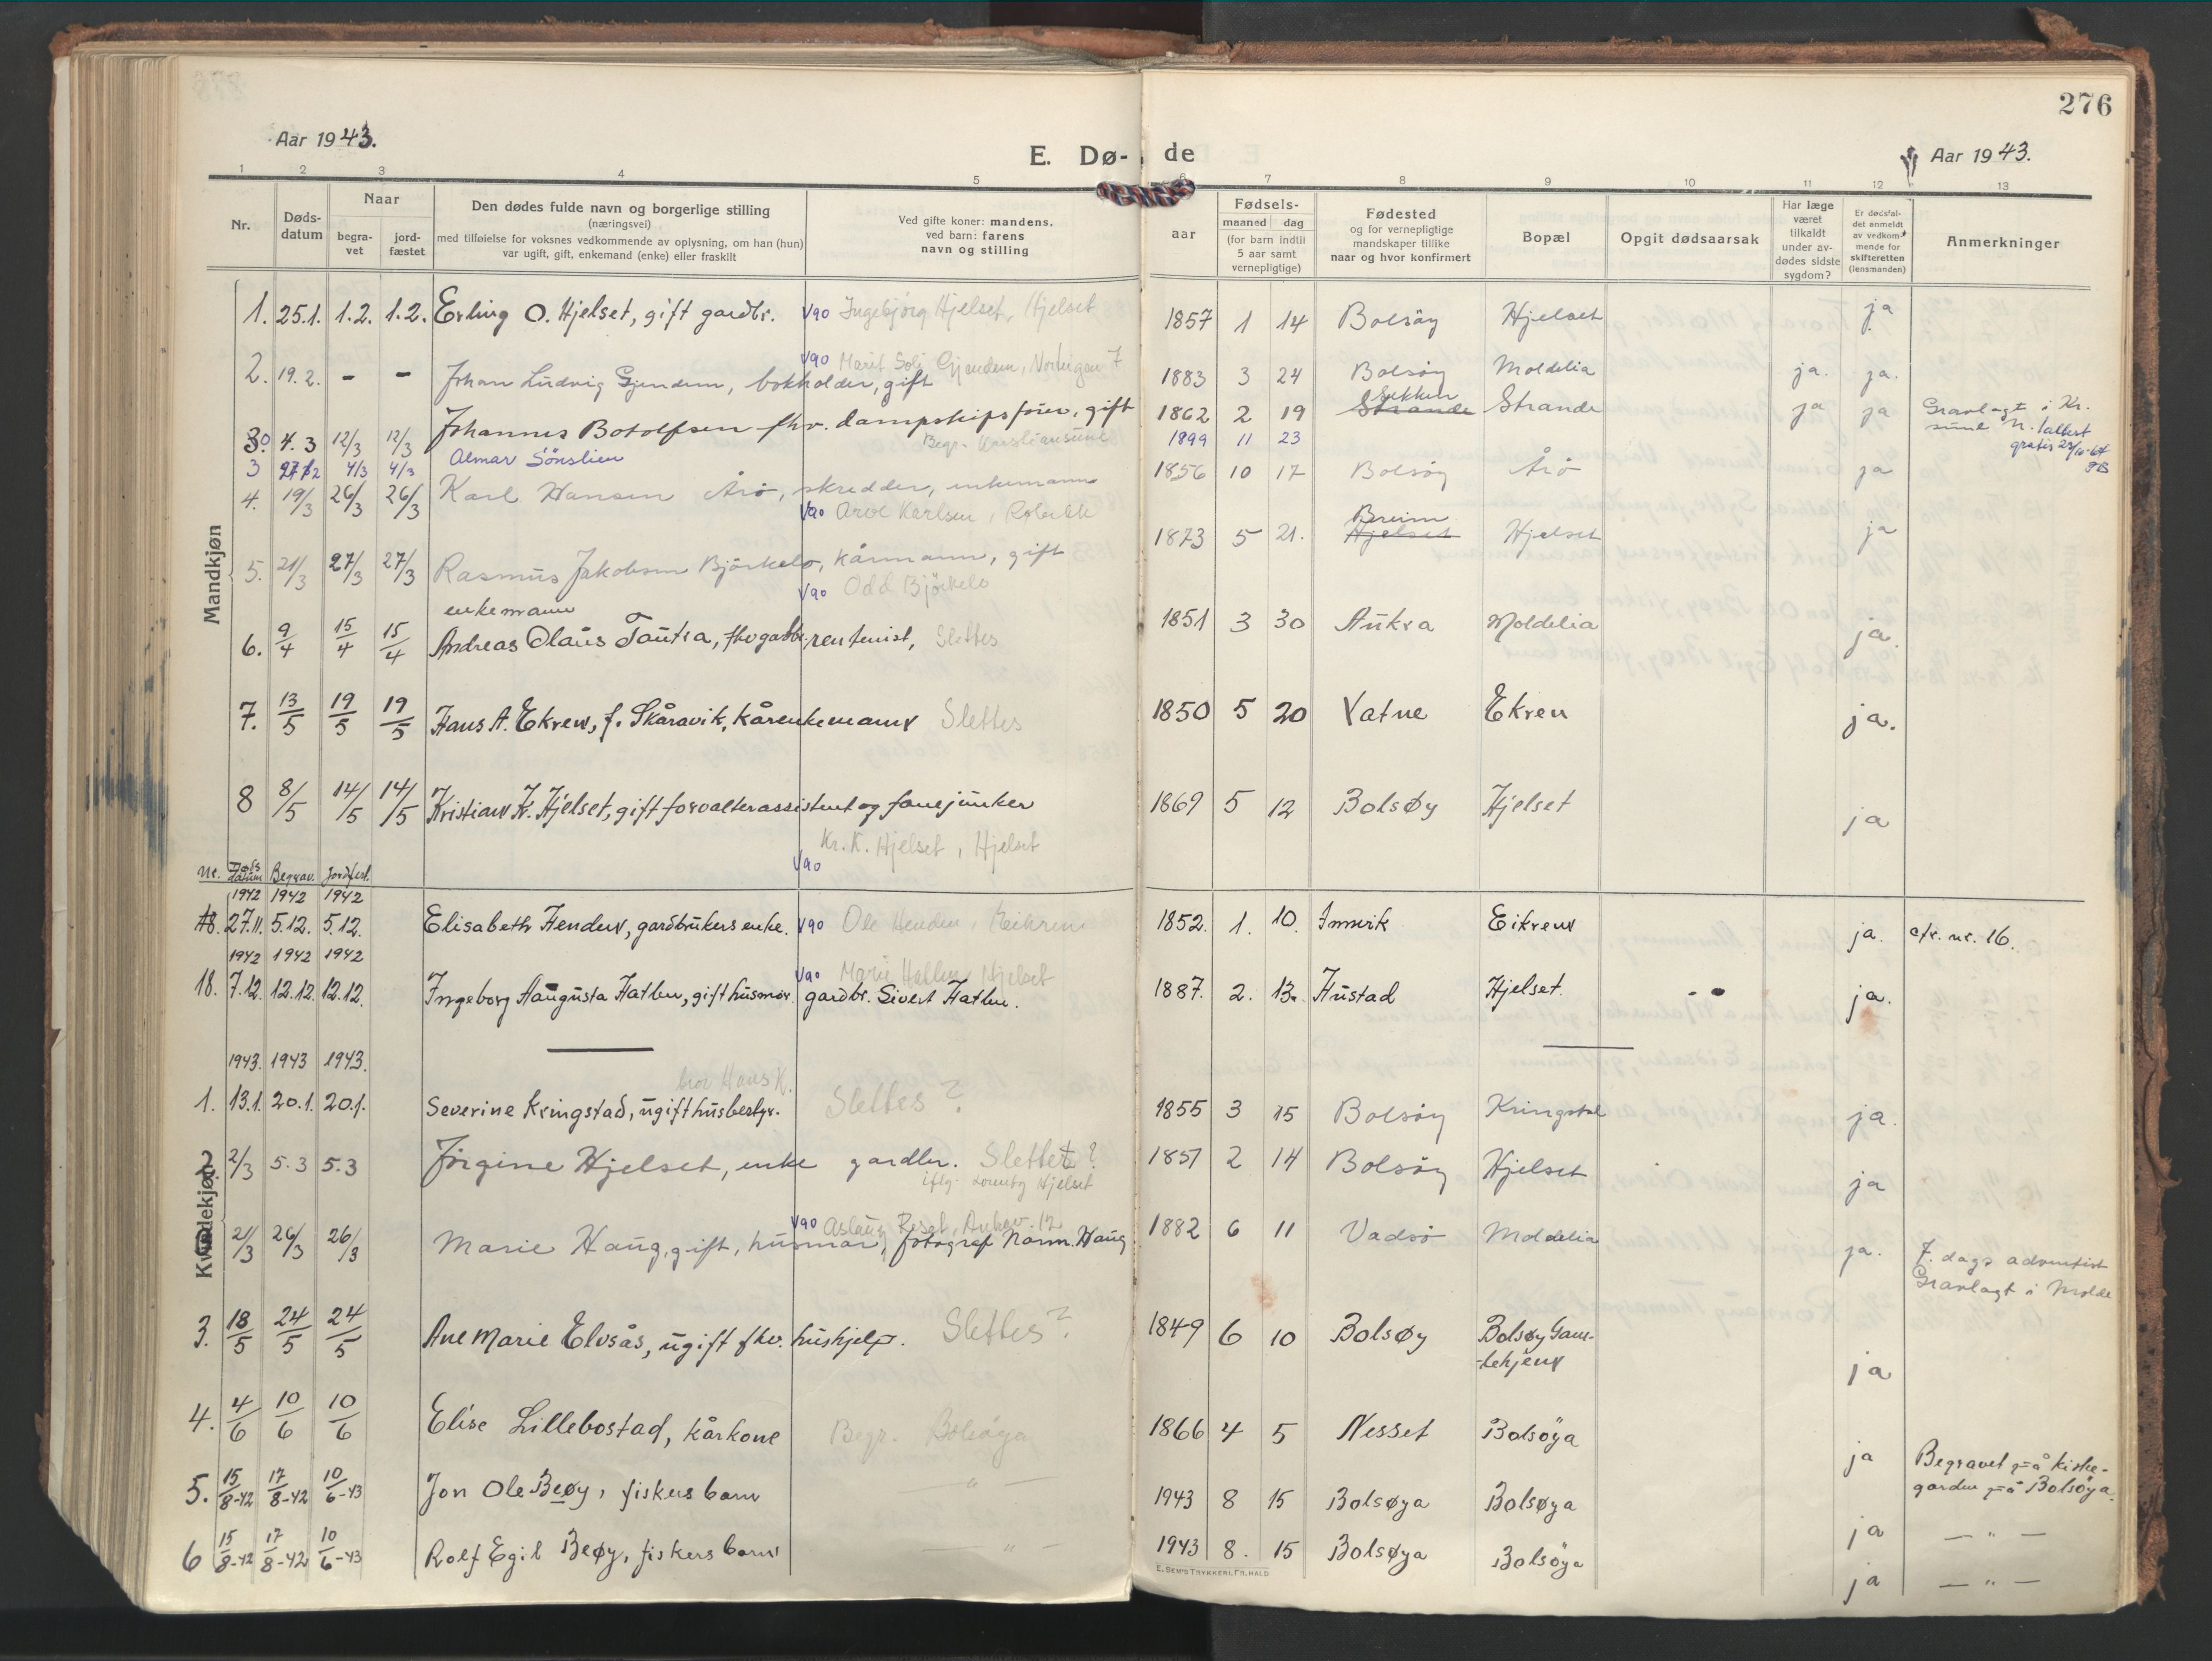 276
Aar 1943.
E. Dø- de
Aar 1943.
1 2 3 4 5 6 7 8 9 10 11 12 13
Nr.
Døds-
datum
Naar
begra-
vet
jord-
fæstet
Den dødes fulde navn og borgerlige stilling
(næringsvei)
med tilføielse for voksnes vedkommende av oplysning, om han (hun)
var ugift, gift, enkemand (enke) eller fraskilt
Ved gifte koner: mandens,
ved barn: farens
navn og stilling
Fødsels-
aar
maaned dag
(for barn indtil
5 aar samt
vernepligtige)
Fødested
og for vernepligtige
mandskaper tillike
naar og hvor konfirmert
Bopæl
Opgit dødsaarsak
Har læge
været
tilkaldt
under av-
dødes sidste
sygdom?
Er dødsfal-
det anmeldt
av vedkom-
mende for
skifteretten
(lensmanden)
Anmerkninger
Mandkjøn
1. 25.1. 1.2. 1.2. Erling O. Hjelset, gift gardbr. Vao Ingebjörg Hjelset, Hjelset 1857 1 14 Bolsöy Hjelset ja
Vao Marit Gjendem,
2. 19.2. - - Johan Ludvig Gjendem, bokholder, gift 1883 3 24 Bolsöy Moldelia ja. ja.
Sekken
30 4.3 12/3 12/3 Johannes Botolfsen fhv. dampskipsförer, gift 1862 2 19 Strande Strande ja ja Gravlagt i Kr.
sund N.
Begr. Kristiansund
3 27/12 4/3 4/3 Almar Sönslien 1899 11 23 attest
gratis 23/10-64
4. 19/3 26/3 26/3 Karl Hansen Årö, skredder, enkemann 1856 10 17 Bolsöy Årö ja
Vao Arve Karlsen,
Breim
5. 21/3 27/3 27/3 Rasmus Jakobsen Björkelo, kårmann, gift 1873 5 21. Hjelset Hjelset ja
Vao Odd Björkelo
enkemann
6. 9/4 15/4 15/4 Andreas Olaus Tautra, fhv gardbr, rentenist, Slettes 1851 3 30 Aukra Moldelia ja.
7. 13/5 19/5 19/5 Hans A. Ekren, f. Skåravik, kårenkemann Slettes 1850 5 20 Vatne Ekren ja.
8 8/5 14/5 14/5 Kristian K. Hjelset, gift forvalterassistent og fanejunker 1869 5 12 Bolsøy Hjelset ja
Kr. K. Hjelset, Hjelset
Vao
Nr. Døds datum Begrav. Jordfest.
1942 1942 1942
18. 27.11. 5.12. 5.12. Elisabeth Henden, gardbrukers enke. Vao Ole Henden, Eikrem 1852. 1. 10. Innvik Eikrem ja. cfr. nr. 16.
1942 1942 1942
Vao Marie Hatlen Hjelset
18. 7.12. 12.12. 12.12. Ingeborg Augusta Hatlen, gift husmor. gardbr. Sivert Hatlen. 1887. 2. 13. Hustad Hjelset. - - ja.
1943. 1943 1943.
bror Hans K.
1. 13.1. 20.1. 20.1. Severine Kringstad, ugift husbestyr. Slettes? 1855 3 15 Bolsöy Kringstad ja.
Kvindekjøn
2. 2/3 5.3 5.3 Jörgine Hjelset, enke gardbr. Slettet? 1857 2 14 Bolsöy Hjelset ja
iflg. Hjelset
Vao Aslaug
21/3 26/3 26/3 Marie Haug, gift, husmor, fotograf Norm. Haug 1882 6 11 Vadsö Moldelia ja. 7. dags adventist
Gravlagt i Molde
3. 18/5 24/5 24/5 Ane Marie Elvsås, ugift fhv. hushjelp. Slettes? 1849 6 10 Bolsøy Bolsøy Gam-
-lehjem ja
4. 4/6 10/6 10/6 Elise Lillebostad, kårkone Begr. Bolsöya 1866 4 5 Nesset Bolsöya ja Begravet på kirke-
gården på Bolsöya.
5. 15/8-42 17/8-42 10/6-43 Jon Ole Beøy, fiskers barn " — 1943 8 15 Bolsøya Bolsøya ja — " —
6 15/8-42 17/8-42 10/6-43 Rolf Egil Beøy, fiskers barn — " — 1943 8. 15 Bolsøya Bolsöya ja — " —
E. SEM'S TRYKKERI, FR.HALD